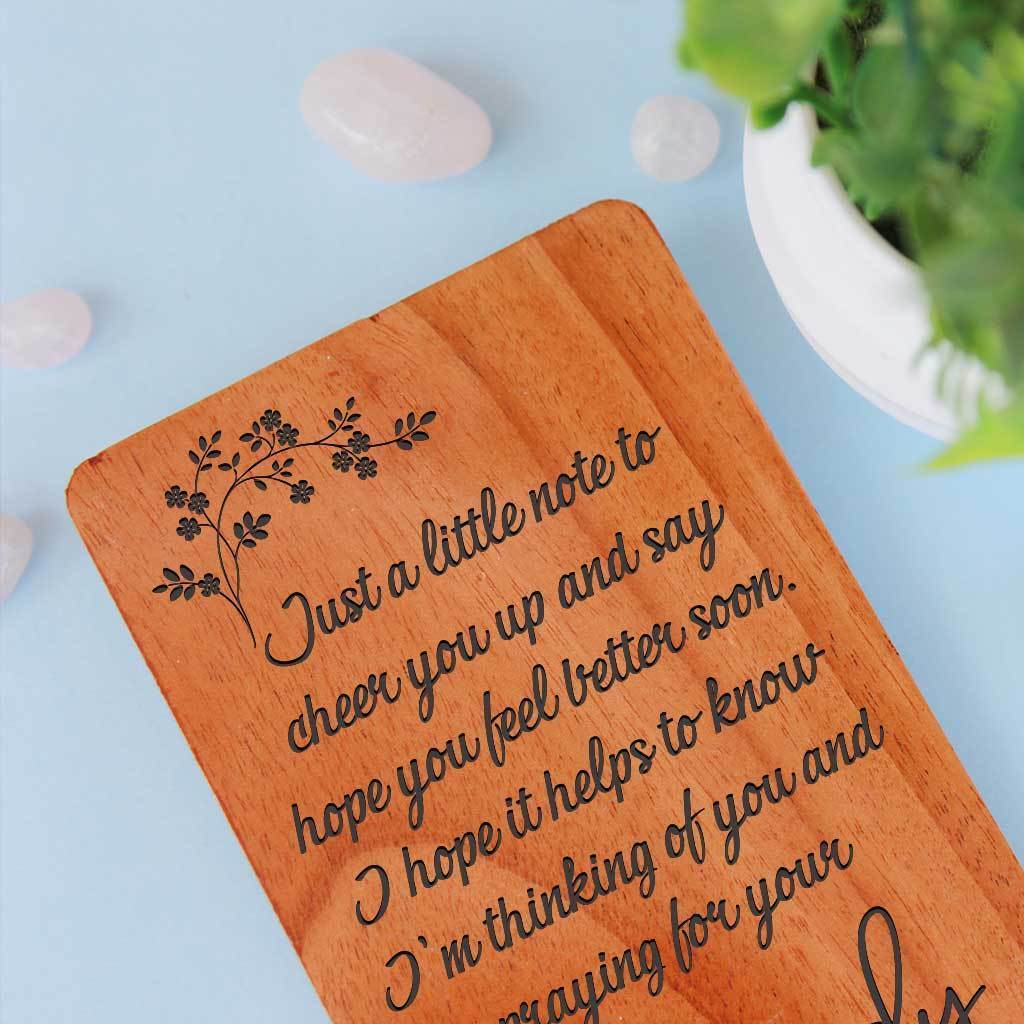 Just a little note to
cheer you up and say
hope you feel better soon.
I hope it helps to know
I'm thinking of you and
praying for your